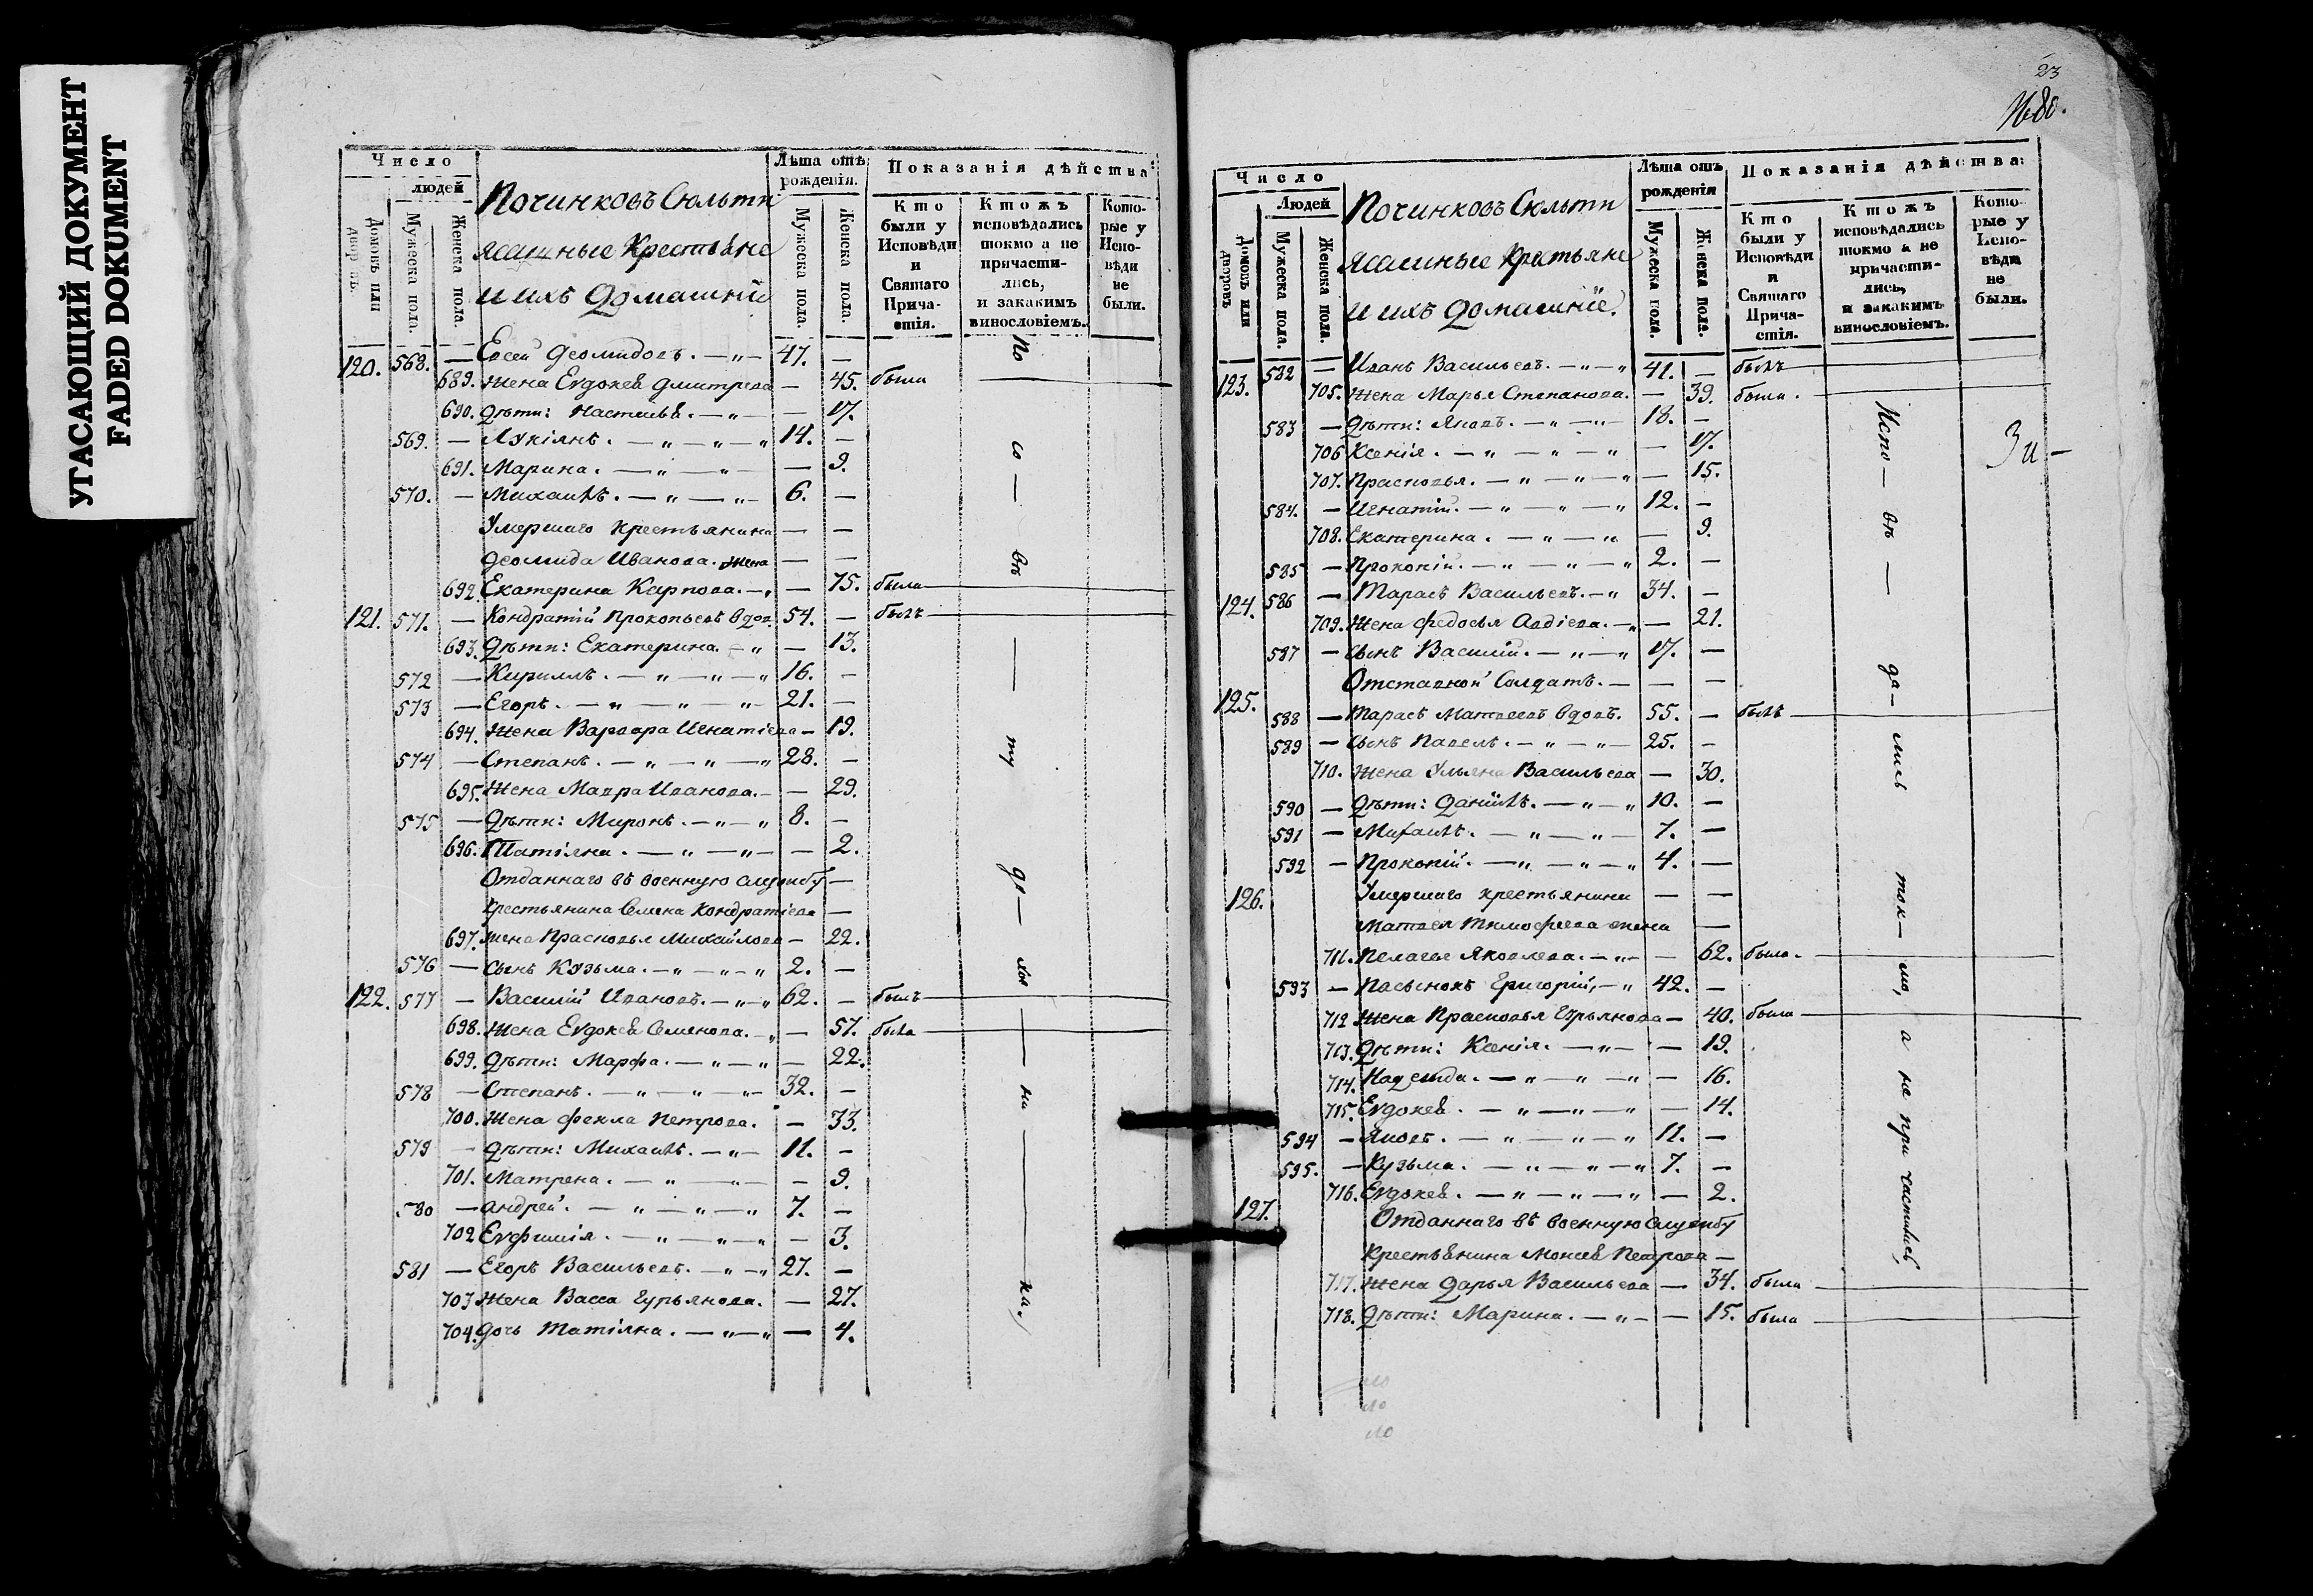 УГАСАЮЩИЙ ДОКУМЕНТ
FADED DOKUMENT
Число
людей
Домовъ или дворовъ.
Мужеска пола.
Женска пола.
Починковъ Сюльти
ясашные крестьяне
и ихъ домашніе
Лѣта отъ рожденія.
Мужеска пола.
Женска пола.
Показанія дѣйства:
Кто были у Исповѣди и Святаго Причастія.
Ктожъ исповѣдались токмо а не причастились, и закакимъ винословіемъ.
Которые у Исповѣди не были.
120. 568. — Евсей Деомидовъ. — „ — 47. —
689. жена Евдокея Дмитрева — 45. была
690. дѣти: Настасья. — „ — — 17.
569. — Лукіянъ. — „ — „ — „ 14. —
691. Марина. — „ — „ — — 9.
570. — Михаилъ. — „ — „ — 6. —
Умершаго крестьянина — —
Деомида Иванова. жена — —
692. Екатерина Карпова. — „ — 75. была
121. 571. — Кондратій Прокопьевъ вдов. 54. — былъ
693. Дѣти: Екатерина. — „ — 13.
572 — Кириллъ. — „ — „ — „ 16. —
573 — Егоръ. — „ — „ — „ — 21. —
694. жена Варвара Игнатіева — 19.
574 — Степанъ. — „ — „ — „ 28. —
695. жена Мавра Иванова. — — 29.
575 — Дѣти: Миронъ. — „ — „ 8. —
696. Татіяна. — „ — „ — — 2.
Отданнаго въ военную службу —
крестьянина Семена Кондратіева —
697. жена Прасковья Михайлова — 22.
576 — сынъ Кузьма. — „ — „ — „ 2. —
122. 577 — Василій Ивановъ. — „ — „ 62. — былъ
698. жена Евдокея Семенова. — „ — 57. была
699. дѣти: Марфа. — „ — „ — 22.
578 — Степанъ. — „ — „ — „ — 32. —
700. жена Фекла Петрова. — 33.
579 — дѣти: Михаилъ. — „ — 11. —
701. Матрена. — „ — „ — — 9.
580 — Андрей. — „ — „ — „ 7. —
702 Евфимія. — „ — „ — „ — 3.
581 — Егоръ Васильевъ. — „ — „ 27. —
703 жена Васса Гурьянова. — 27.
704. дочь Татіяна. — „ — „ — 4.
По со — въ — ту де — ль — на — ка.
23
№80.
Число
Людей
Домовъ или дворовъ
Мужеска пола.
Женска пола.
Починковъ Сюльти
ясашные крестьяне
и ихъ домашніе.
Лѣта отъ рожденія
Мужеска пола.
Женска пола.
Показанія дѣйства:
Кто были у Исповѣди и Святаго Причастія.
Ктожъ исповѣдались токмо а не причастились, и закакимъ винословіемъ.
Которые у Исповѣди не были.
123. 582 — Иванъ Васильевъ. — „ — „ 41. — былъ
705. жена Марья Степанова. — 39. была.
583 — дѣти: Яковъ. — „ — „ — 18. —
706 Ксенія. — „ — „ — „ — 17.
707. Прасковья. — „ — „ — „ — 15.
584. — Игнатій. — „ — „ — „ 12. —
708. Екатерина. — „ — „ — 9.
585 — Прокопій. — „ — „ — „ 2. —
124. 586 — Тарасъ Васильевъ. — „ 34. —
709. жена Федосья Авдіева. — „ — 21.
587 — сынъ Василій. — „ — „ 17. —
125. Отставной Солдатъ. — — —
588 — Тарасъ Матвеевъ вдовъ. 55. — былъ
589 — сынъ Павелъ. — „ — „ — 25. —
710. жена Ульяна Васильева — 30.
590 — дѣти: Даніилъ. — „ — „ 10. —
591 — Михаилъ. — „ — „ — 7. —
592 — Прокопій. — „ — „ — „ 4. —
126. Умершаго крестьянина — —
Матвея Тимофеева жена —
711. Пелагея Яковлева. — „ — — 62. была.
593 — Пасынокъ Григорій, — „ 42. —
712 жена Прасковья Гурьянова — 40. была
713. дѣти: Ксенія. — „ — — 19.
714. Надежда. — „ — „ — „ — 16.
715. Евдокея. — „ — „ — „ — 14.
594 — Яковъ. — „ — „ — „ 11. —
595. — Кузьма. — „ — „ — „ 7. —
716. Евдокея. — „ — „ — „ — 2.
127. Отданнаго въ военную службу
крестьянина Моисея Петрова —
717. жена Дарья Васильева — 34. была
718. дѣти: Марина. — „ — — 15. была
Испо — вѣ — да — лись ток — мо, а не при частились,